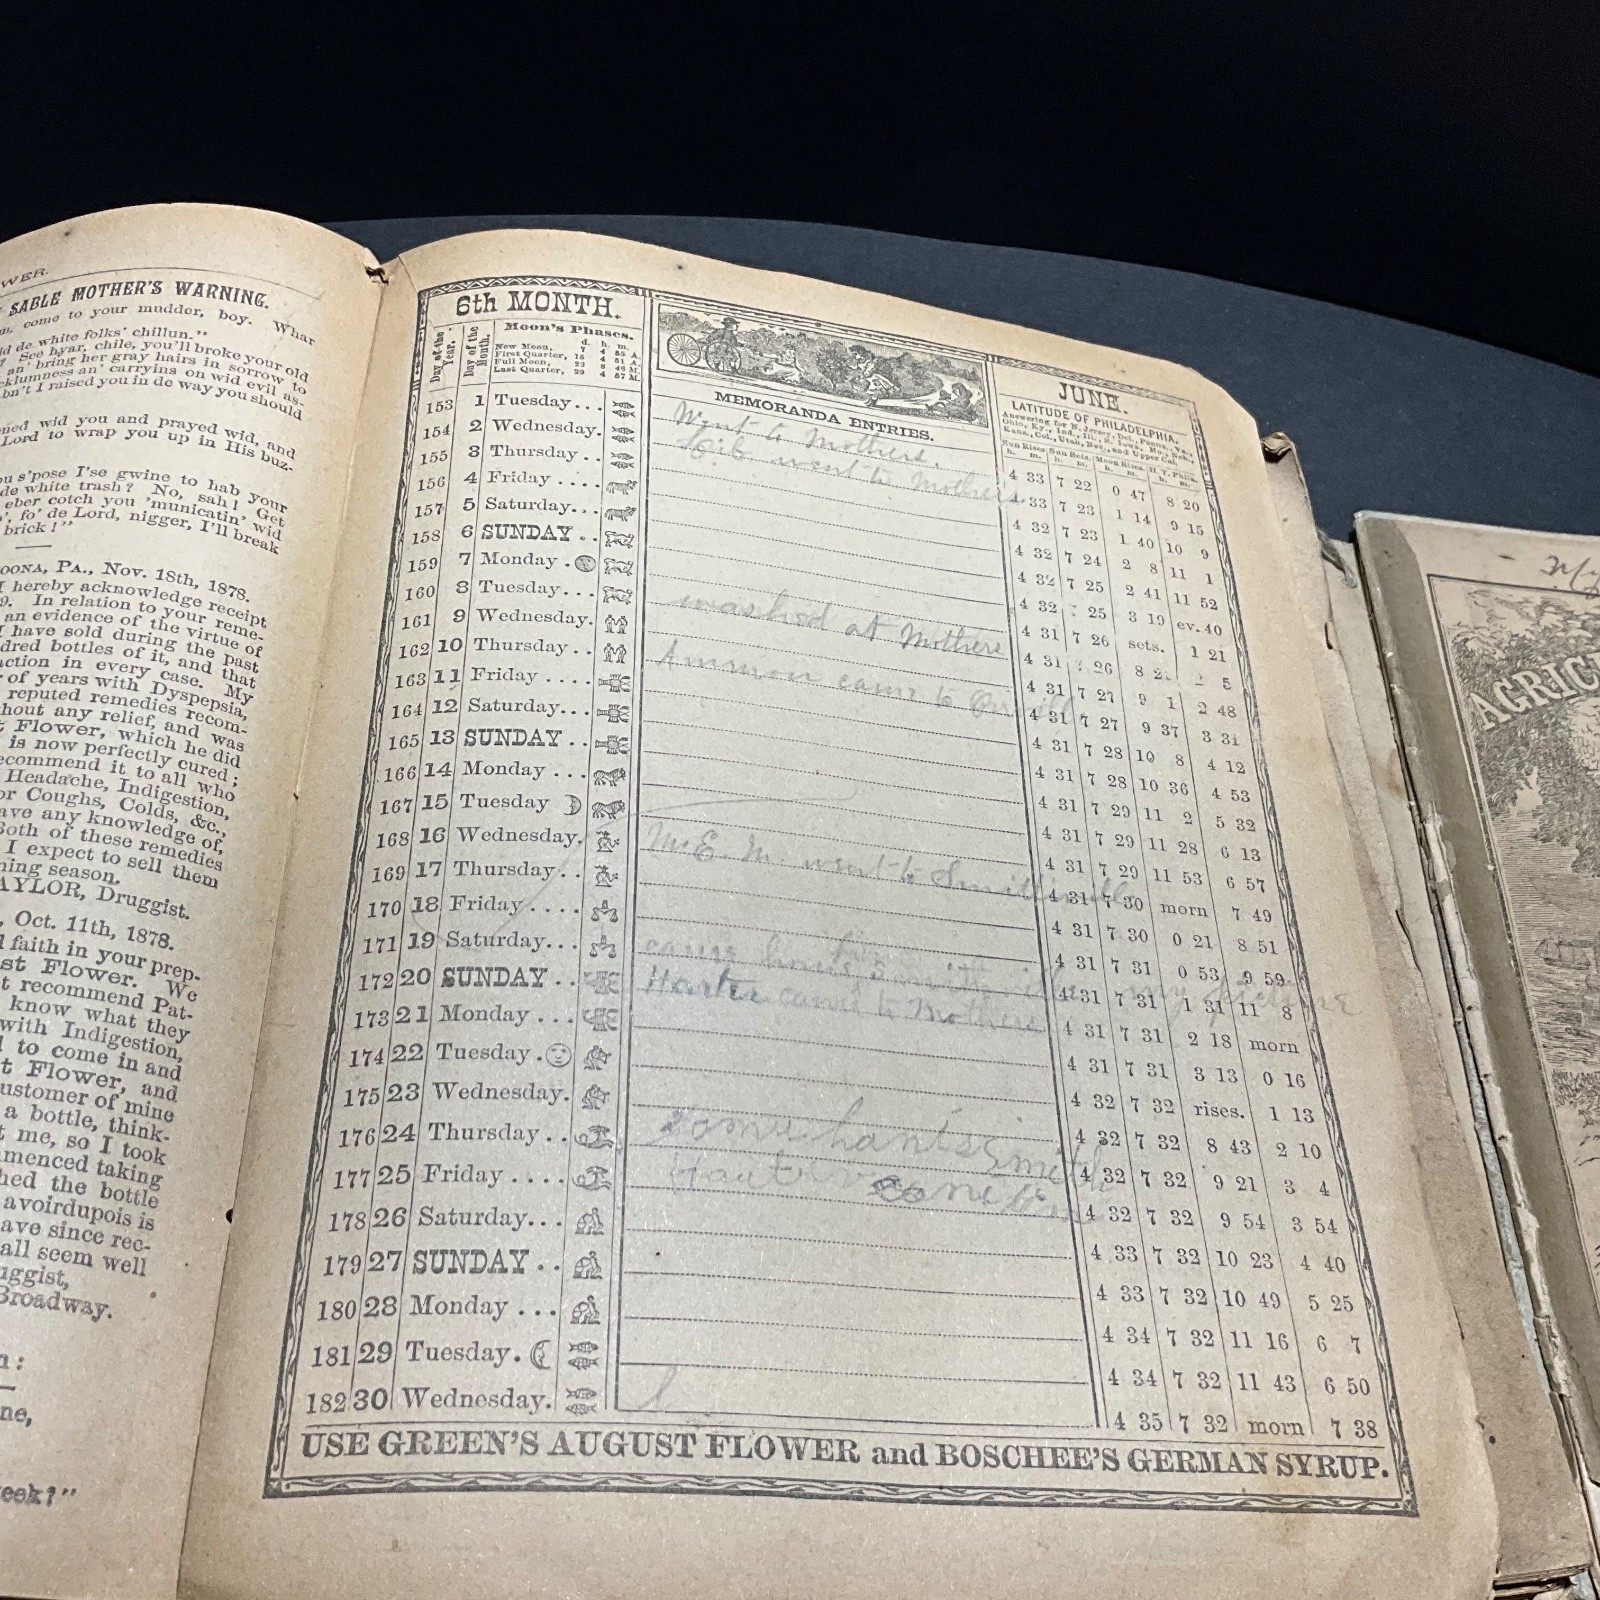 WER.
SABLE MOTHER'S WARNING.
come to your mudder, boy. Whar
de white folks' chillun."
See hyar, chile, you'll broke your old
an' bring her gray hairs in sorrow to
an' carryin on wid evil as-
I raised you in de way you should
wid you and prayed wid, and
Lord to wrap you up in His buz-
s'pose I'se gwine to hab your
de white trash? No, sah! Get
eber cotch you 'municatin' wid
fo' de Lord, nigger, I'll break
brick!"
OONA, PA., Nov. 18th, 1878.
I hereby acknowledge receipt
9. In relation to your reme-
an evidence of the virtue of
I have sold during the past
dred bottles of it, and that
action in every case. My
of years with Dyspepsia,
reputed remedies recom-
hout any relief, and was
t Flower, which he did
is now perfectly cured;
ecommend it to all who
Headache, Indigestion,
or Coughs, Colds, &c.,
ave any knowledge of,
Both of these remedies
I expect to sell them
ning season.
AYLOR, Druggist.
, Oct. 11th, 1878.
faith in your prep-
st Flower. We
t recommend Pat-
know what they
with Indigestion,
to come in and
t Flower, and
ustomer of mine
a bottle, think-
t me, so I took
menced taking
hed the bottle
avoirdupois is
ave since rec-
all seem well
uggist,
Broadway.
n:
ne,
eek?"
6th MONTH.
Day of the Year.
Day of the Month.
Moon's Phases.
d. h. m.
New Moon, 7 4 55 A.
First Quarter, 15 4 51 A.
Full Moon, 22 8 46 M.
Last Quarter, 29 4 57 M.
MEMORANDA ENTRIES.
JUNE.
LATITUDE OF PHILADELPHIA.
Answering for N. Jersey, Del., Penna., Va.,
Ohio, Ky., Ind., Ill., S. Iowa, Mo., Neb.,
Kans., Col., Utah, Nev., and Upper Cal.
Sun Rises Sun Sets. Moon Rises. H. T. Phila.
h. m. h. m. h. m. h. m.
153 1 Tuesday... Went to Mothers. 4 33 7 22 0 47 8 20
154 2 Wednesday. went to Mothers 33 7 23 1 14 9 15
155 3 Thursday... 4 32 7 23 1 40 10 9
156 4 Friday .... 4 32 7 24 2 8 11 1
157 5 Saturday... 4 32 7 25 2 41 11 52
158 6 SUNDAY .. 4 32 25 3 19 ev.40
159 7 Monday . 4 31 7 26 sets. 1 21
160 8 Tuesday... washed at Mothers 4 31 26 8 5
161 9 Wednesday. 4 31 7 27 9 1 2 48
162 10 Thursday... came to 4 31 7 27 9 37 3 31
163 11 Friday .... 4 31 7 28 10 8 4 12
164 12 Saturday... 4 31 7 28 10 36 4 53
165 13 SUNDAY .. 4 31 7 29 11 2 5 32
166 14 Monday ... 4 31 7 29 11 28 6 13
167 15 Tuesday 4 31 7 29 11 53 6 57
168 16 Wednesday. M. E. M. went to Smithville 4 31 7 30 morn 7 49
169 17 Thursday... 4 31 7 30 0 21 8 51
170 18 Friday .... 4 31 7 31 0 53 9 59
171 19 Saturday... came home with my picture 4 31 7 31 1 31 11 8
172 20 SUNDAY .. came to Mothers 4 31 7 31 2 18 morn
173 21 Monday ... 4 31 7 31 3 13 0 16
174 22 Tuesday . 4 32 7 32 rises. 1 13
175 23 Wednesday. 4 32 7 32 8 43 2 10
176 24 Thursday... Smith 4 32 7 32 9 21 3 4
177 25 Friday .... 4 32 7 32 9 54 3 54
178 26 Saturday... 4 33 7 32 10 23 4 40
179 27 SUNDAY .. 4 33 7 32 10 49 5 25
180 28 Monday ... 4 34 7 32 11 16 6 7
181 29 Tuesday. 4 34 7 32 11 43 6 50
182 30 Wednesday. 4 35 7 32 morn 7 38
USE GREEN'S AUGUST FLOWER and BOSCHEE'S GERMAN SYRUP.
My
AGRIC